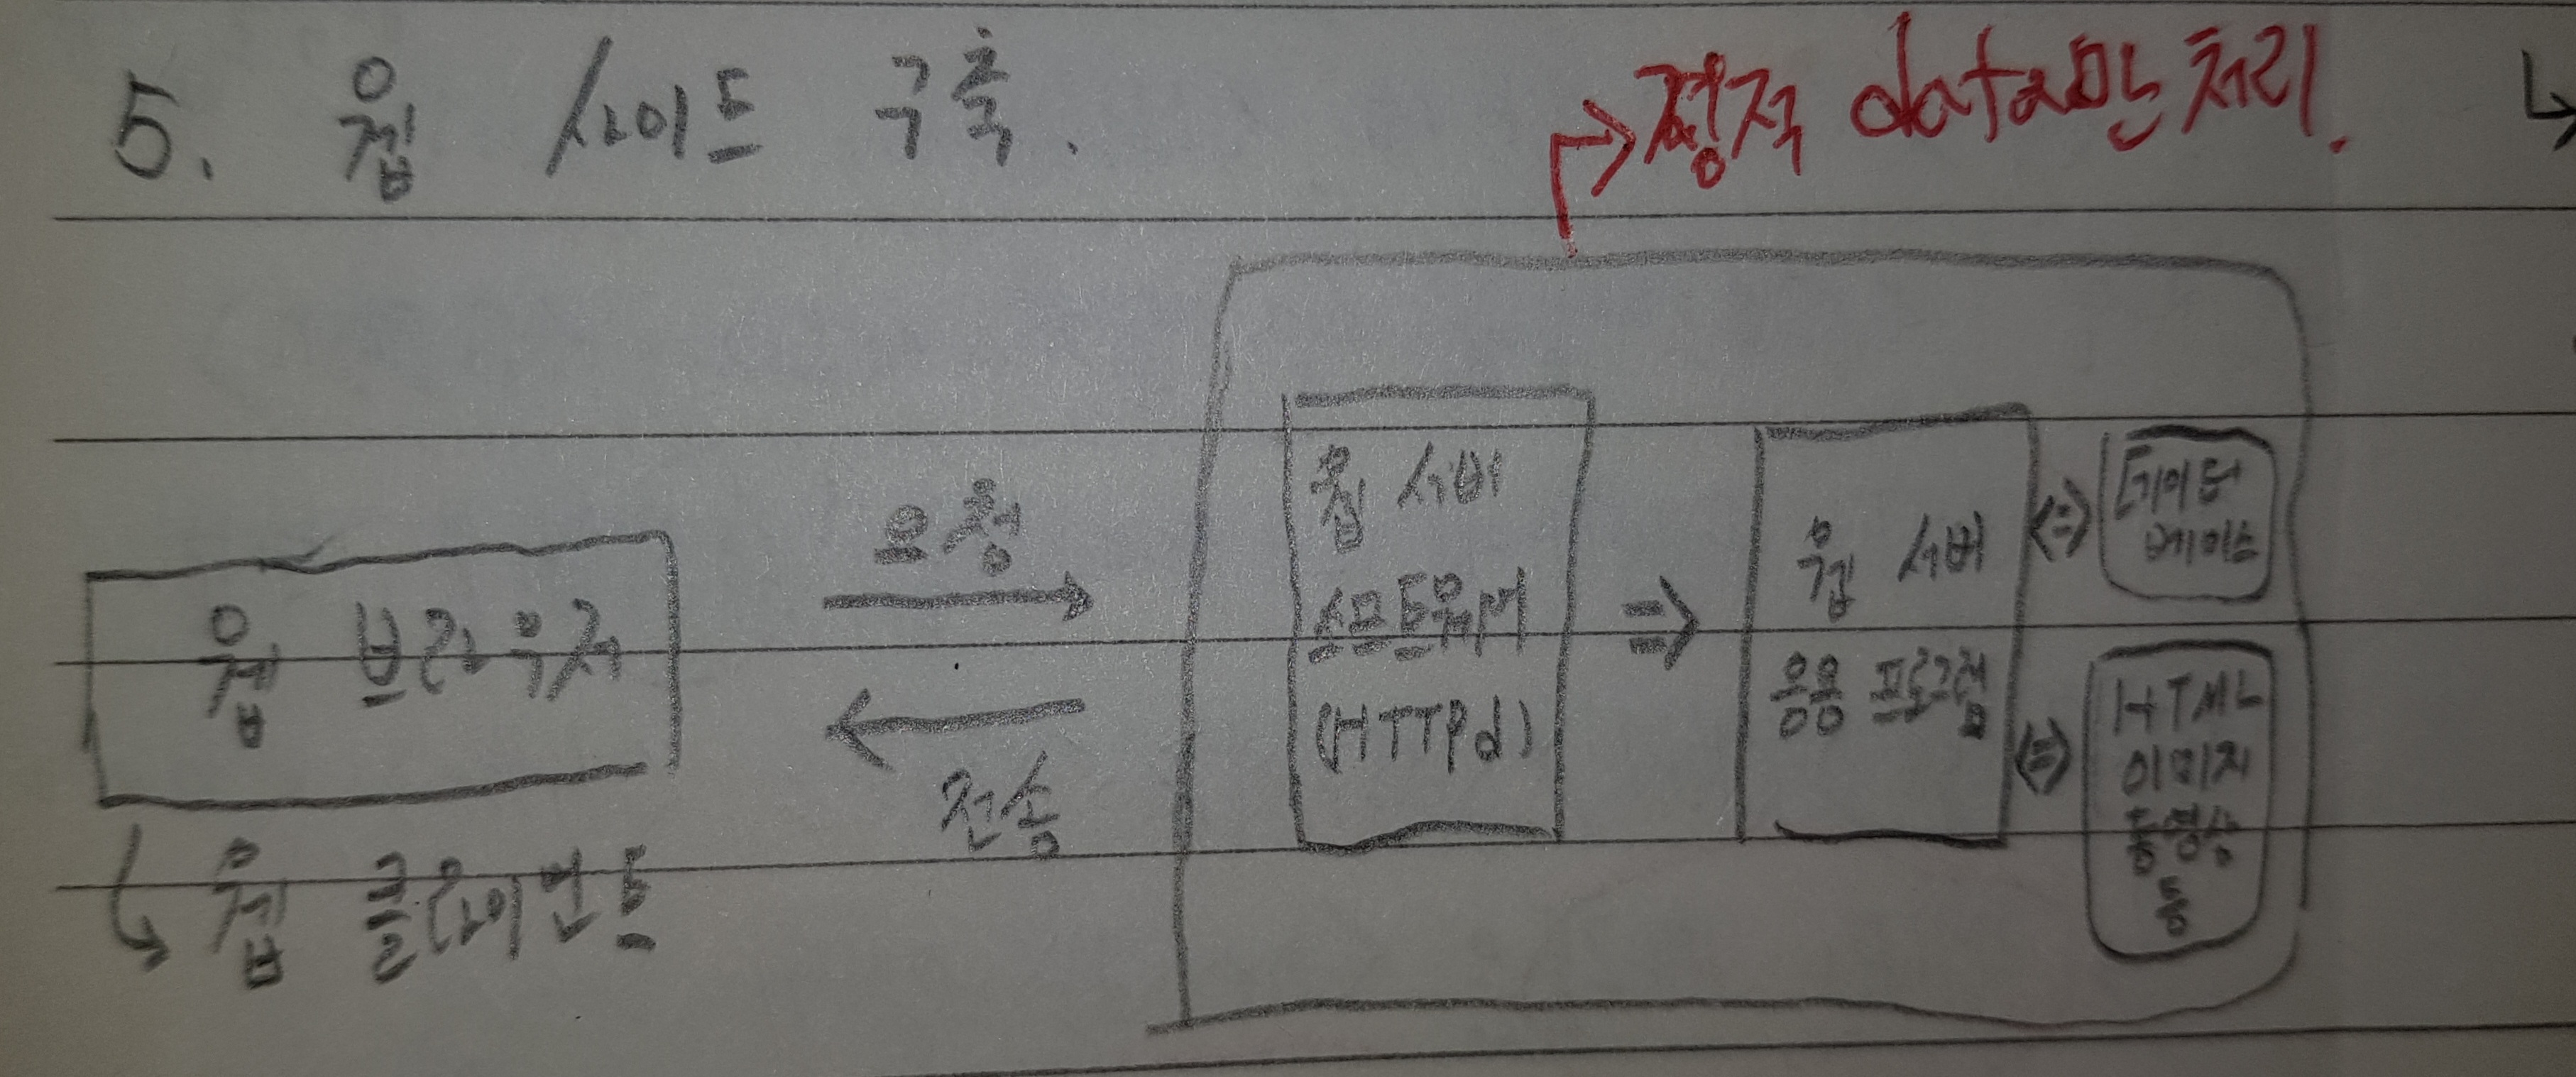 5. 웹 사이트 구축.
정적 data만 처리.
웹 브라우저
웹 클라이언트
요청
전송
웹 서버
소프트웨어
(HTTPd)
웹 서버
응용 프로그램
데이터
베이스
HTML
이미지
동영상
등